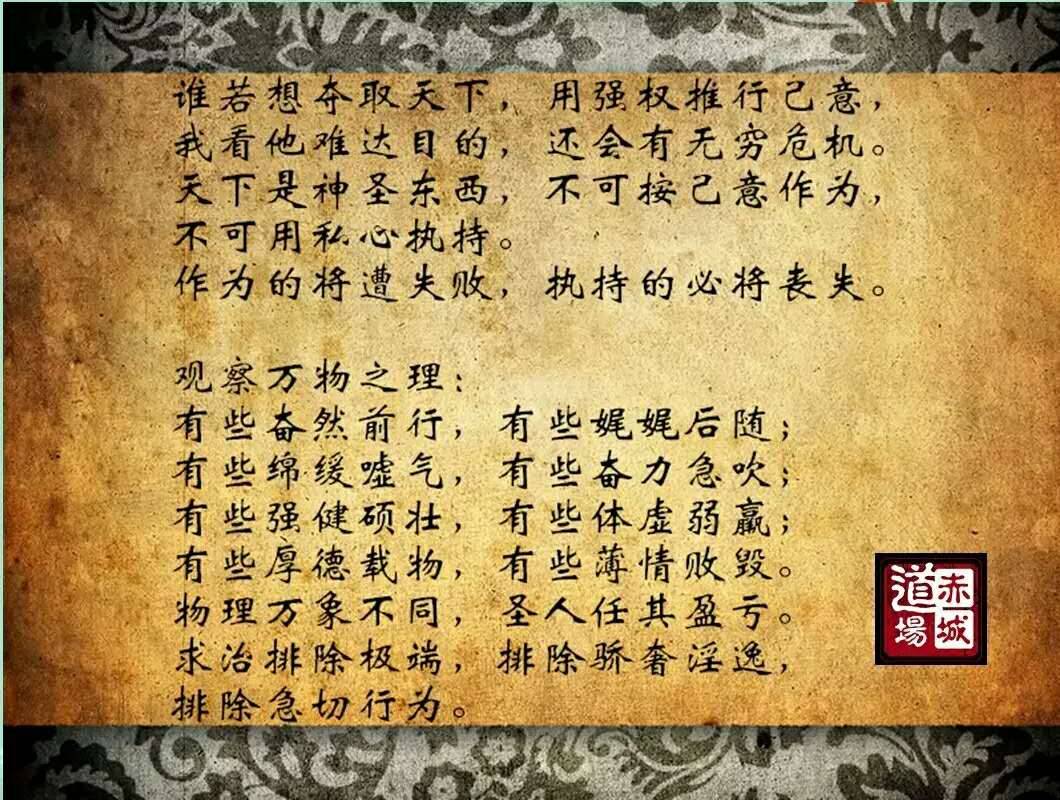 谁若想夺取天下，用强权推行己意，
我看他难达目的，还会有无穷危机。
天下是神圣东西，不可按己意作为，
不可用私心执持。
作为的将遭失败，执持的必将丧失。
观察万物之理：
有些奋然前行，有些娓娓后随；
有些绵缓嘘气，有些奋力急吹；
有些强健硕壮，有些体虚弱羸；
有些厚德载物，有些薄情败毁。
物理万象不同，圣人任其盈亏。
求治排除极端，排除骄奢淫逸，
排除急切行为。
赤城
道場